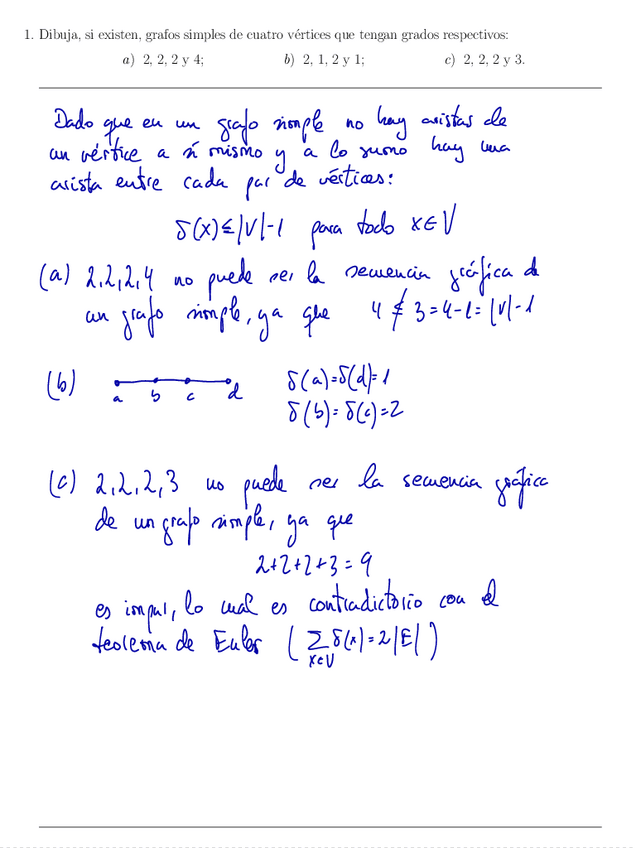 1. Dibuja, si existen, grafos simples de cuatro vértices que tengan grados respectivos:
a) 2, 2, 2 y 4; b) 2, 1, 2 y 1; c) 2, 2, 2 y 3.
Dado que en un grafo simple no hay aristas de
un vértice a sí mismo y a lo sumo hay una
arista entre cada par de vértices:
δ(x)≤|V|-1 para todo x∈V
(a) 2,2,2,4 no puede ser la secuencia gráfica de
un grafo simple, ya que 4 ≰ 3=4-1=|V|-1
(b) a b c d δ(a)=δ(d)=1
δ(b)=δ(c)=2
(c) 2,2,2,3 no puede ser la secuencia gráfica
de un grafo simple, ya que
2+2+2+3=9
es impar, lo cual es contradictorio con el
teorema de Euler (∑δ(x)=2|E|)
x∈V